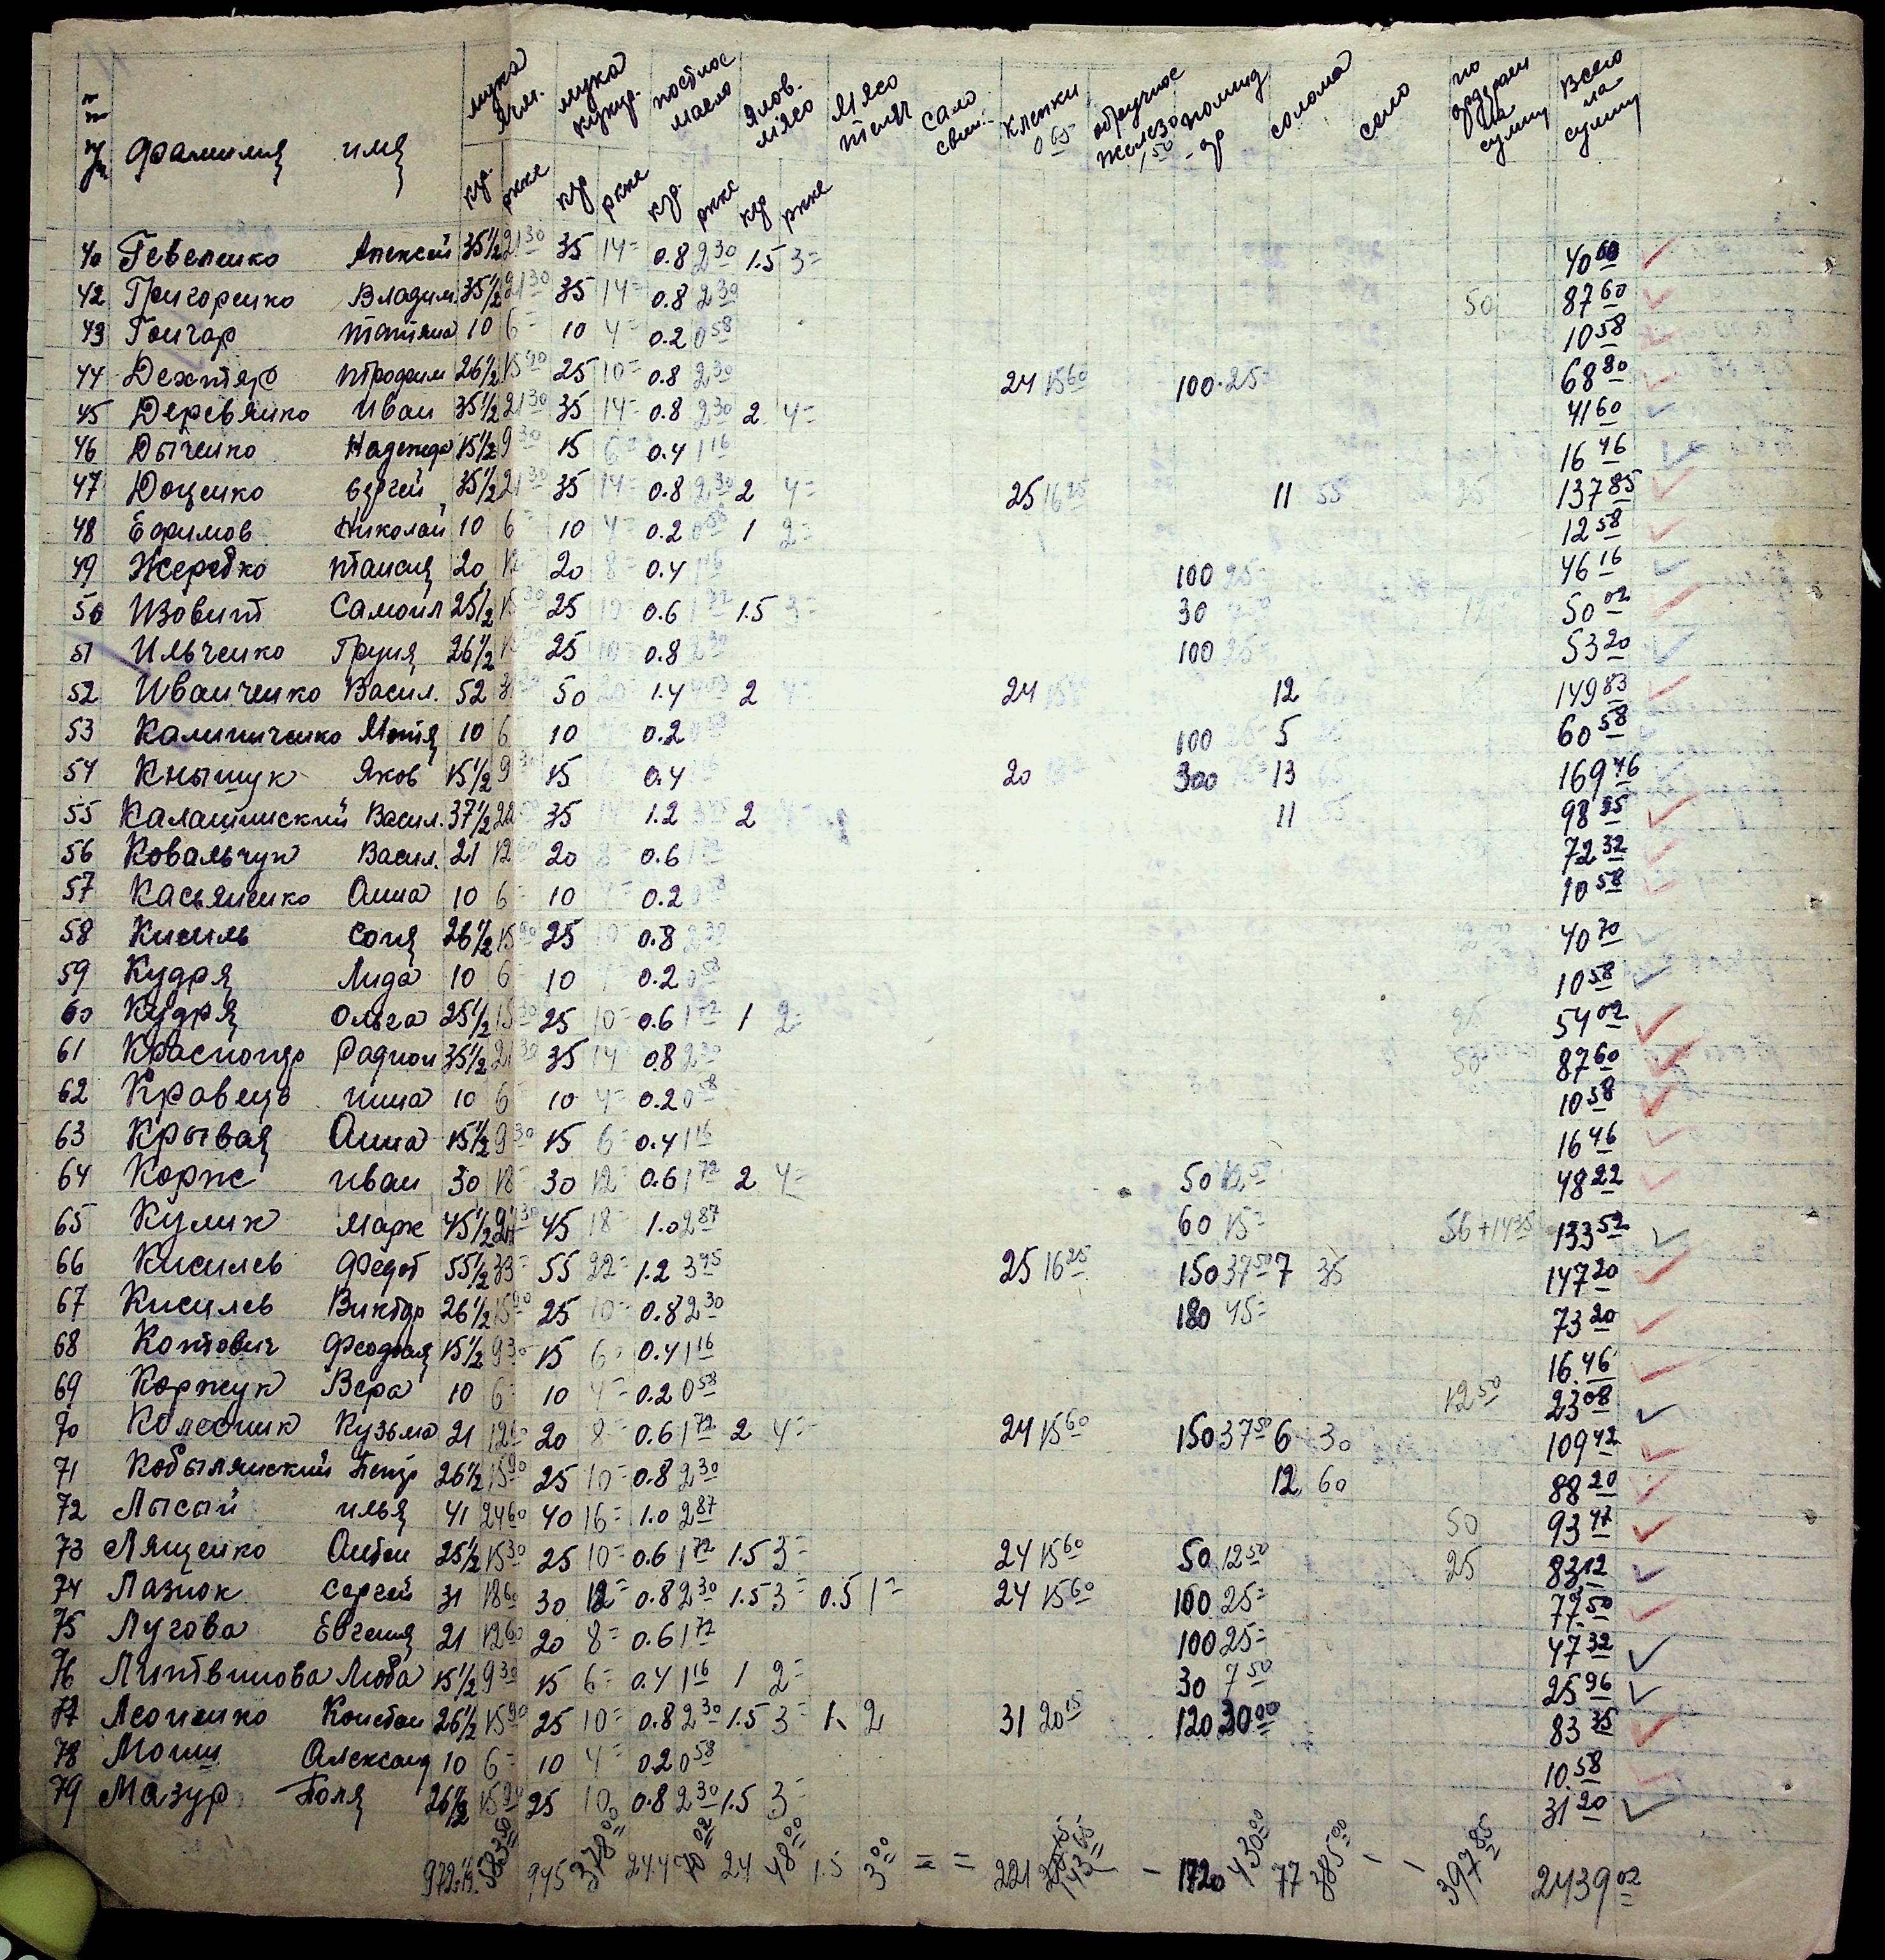 фамилия имя мука ячм. мука кукур. постное масло ялов. мясо мясо телят сало свин. клепки 0 65 обручное железо 1 50 помид - ор солома сено по ордерам на сумму всего на сумму
кгр. ркке кгр ркке кгр. ркке кгр ркке
40 Гевеленко Алексей 35 1/2 21 30 35 14= 0.8 2 30 1.5 3= 40 60
42 Григоренко Владим. 35 1/2 21 30 35 14= 0.8 2 30 50 87 60
43 Гончар Татяна 10 6= 10 4= 0.2 0 58 10 58
44 Дехтяр Трофим 26 1/2 15 90 25 10= 0.8 2 30 24 15 60 100 25= 68 80
45 Деревянко Иван 35 1/2 21 30 35 14= 0.8 2 30 2 4= 41 60
46 Дыченко Надежда 15 1/2 9 30 15 6= 0.4 1 16 16 46
47 Доценко Сергей 35 1/2 21 30 35 14= 0.8 2 30 2 4= 25 16 25 11 55 25 137 85
48 Ефимов Николай 10 6= 10 4= 0.2 0 58 1 2= 12 58
49 Жеребко Таисия 20 12= 20 8= 0.4 1 16 100 25= 46 16
50 Изовит Самоил 25 1/2 15 30 25 10= 0.6 1 72 1.5 3= 30 7 50 12 50 02
51 Ильченко Груня 26 1/2 25 10= 0.8 2 30 100 25= 53 20
52 Иванченко Васил. 52 50 20= 1.4 2 4= 24 12 60 149 83
53 Калиниченко Мотя 10 6 10 0.2 0 58 100 25 5 60 58
54 Кнышук Яков 15 1/2 9 30 15 0.4 20 300 13 169 46
55 Калашинский Васил. 37 1/2 22 50 35 1.2 3 45 2 11 55 98 95
56 Ковальчук Васил. 21 12 60 20 8= 0.6 1 72 72 32
57 Касьяненко Анна 10 6= 10 4= 0.2 0 58 10 58
58 Кисиль Соня 26 1/2 15 90 25 10= 0.8 2 30 40 70
59 Кудря Лида 10 6= 10 4 0.2 0 58 10 58
60 Кудря Ольга 25 1/2 15 30 25 10= 0.6 1 72 1 2= 25 54 02
61 Краснопер Радион 35 1/2 21 30 35 14 0.8 2 30 50 87 60
62 Кравець нина 10 6= 10 4= 0.2 0 58 10 58
63 Крывая Анна 15 1/2 9 30 15 6= 0.4 1 16 16 46
64 Корж иван 30 18= 30 12= 0.6 1 72 2 4= 50 12 50 48 22
65 Кулик Марк 45 1/2 27 30 45 18= 1.0 2 87 60 15= 56+14 35 133 52
66 Кисилев Федот 55 1/2 33= 55 22= 1.2 3 45 25 16 25 150 37 50 7 35 147 20
67 Кисилев Виктор 26 1/2 15 90 25 10= 0.8 2 30 180 45= 73 20
68 Котович Феодосия 15 1/2 9 30 15 6= 0.4 1 16 16.46
69 Коржук Вера 10 6= 10 4= 0.2 0 58 12 50 23 08
70 Колесник Кузьма 21 12 60 20 8= 0.6 1 72 2 4= 24 15 60 150 37 50 6 30 109 42
71 Кобылянский Петр 26 1/2 15 90 25 10= 0.8 2 30 12 60 88 20
72 Лысый илья 41 24 60 40 16= 1.0 2 87 50 93 47
73 Лященко Антон 25 1/2 15 30 25 10= 0.6 1 72 1.5 3= 24 15 60 50 12 50 25 83 12
74 Лазнок Сергей 31 18 60 30 12= 0.8 2 30 1.5 3= 0.5 1= 24 15 60 100 25= 77 50
75 Лугова Евгения 21 12 60 20 8= 0.6 1 72 100 25= 47 32
76 Литвинова Люба 15 1/2 9 30 15 6= 0.4 1 16 1 2= 30 7 50 25 96
77 Леоненко Констан 26 1/2 15 90 25 10= 0.8 2 30 1.5 3= 1. 2 31 20 15 120 30 00 83 35
78 Моши Александ 10 6= 10 4= 0.2 0 58 10.58
79 Мазур Поля 26 1/2 15 90 25 10 0.8 2 30 1.5 3= 31 20
972 1/2 583 50 945 378 00 24.4 70 02 24 48 00 1.5 3 00 = = 221 143 65 - 1720 430 00 77 385 00 - - 397 85 2439 02